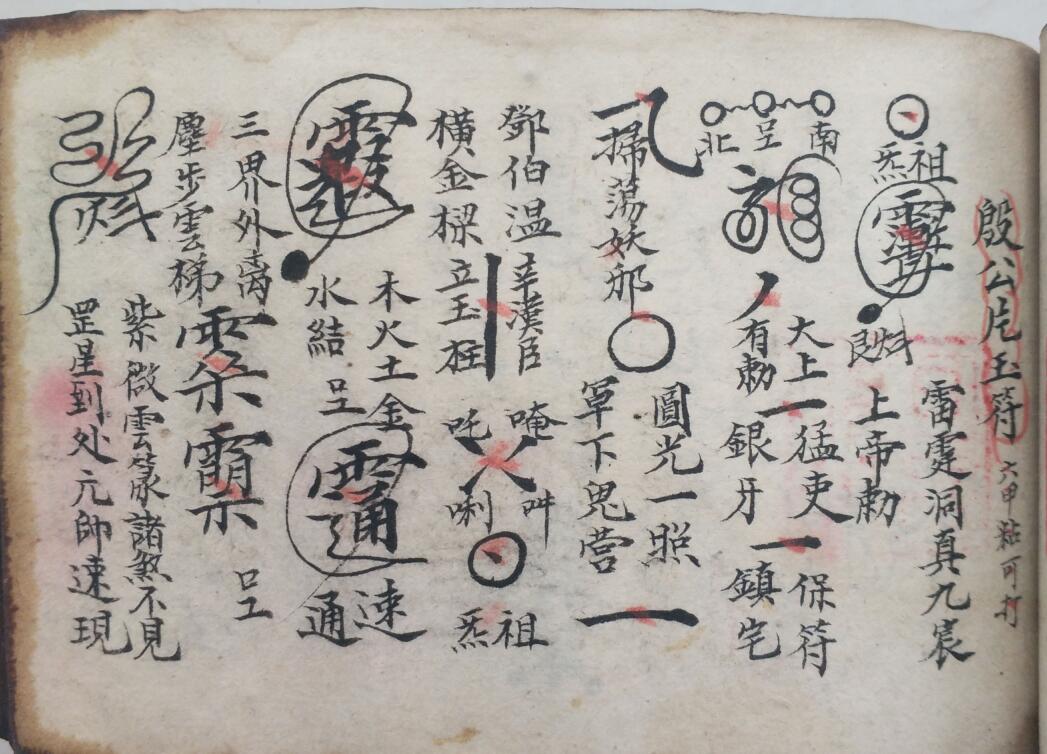 殷公㡯玉符
六甲粘可打
雷霆洞真九宸
祖炁
上帝勅
南
北
大上
有勅
猛吏
銀牙
保符
鎮宅
掃蕩妖邪
圓光一照
罩下鬼營
鄧伯温
辛漢臣
橫金樑
立玉柱
唵
吽
吒
唎
祖炁
木火土金
水結
速通
三界外离
塵步雲梯
紫微雲篆諸煞不見
罡星到处元帥速現